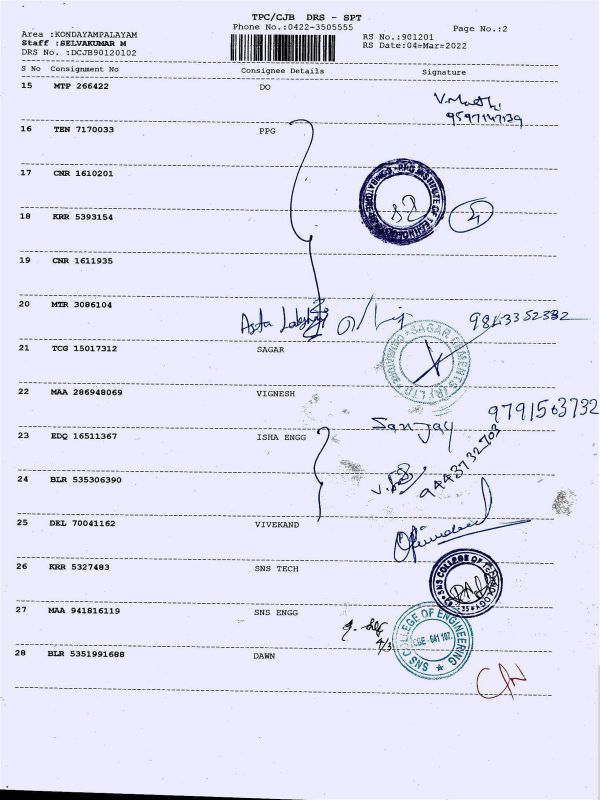 TPC/CJB DRS - SPT
Phone No.:0422-3505555
Page No.:2
Area :KONDAYAMPALAYAM
Staff :SELVAKUMAR M
DRS No. :DCJB90120102
RS No.:901201
RS Date:04-Mar-2022
S No Consignment No Consignee Details Signature
15 MTP 266422 DO
9597147139
16 TEN 7170033 PPG
17 CNR 1610201
INSTITUTE OF TECHNOLOGY
18 KRR 5393154
19 CNR 1611935
20 MTR 3086104
9843352332
21 TCG 15017312 SAGAR
SAGAR
22 MAA 286948069 VIGNESH
Sanjay 9791563732
23 EDQ 16511367 ISHA ENGG
9443732703
24 BLR 535306390
25 DEL 70041162 VIVEKAND
26 KRR 5327483 SNS TECH
SNS COLLEGE OF TECHNOLOGY
27 MAA 941816119 SNS ENGG
SNS COLLEGE OF ENGINEERING
CBE - 641 107.
28 BLR 5351991688 DAWN